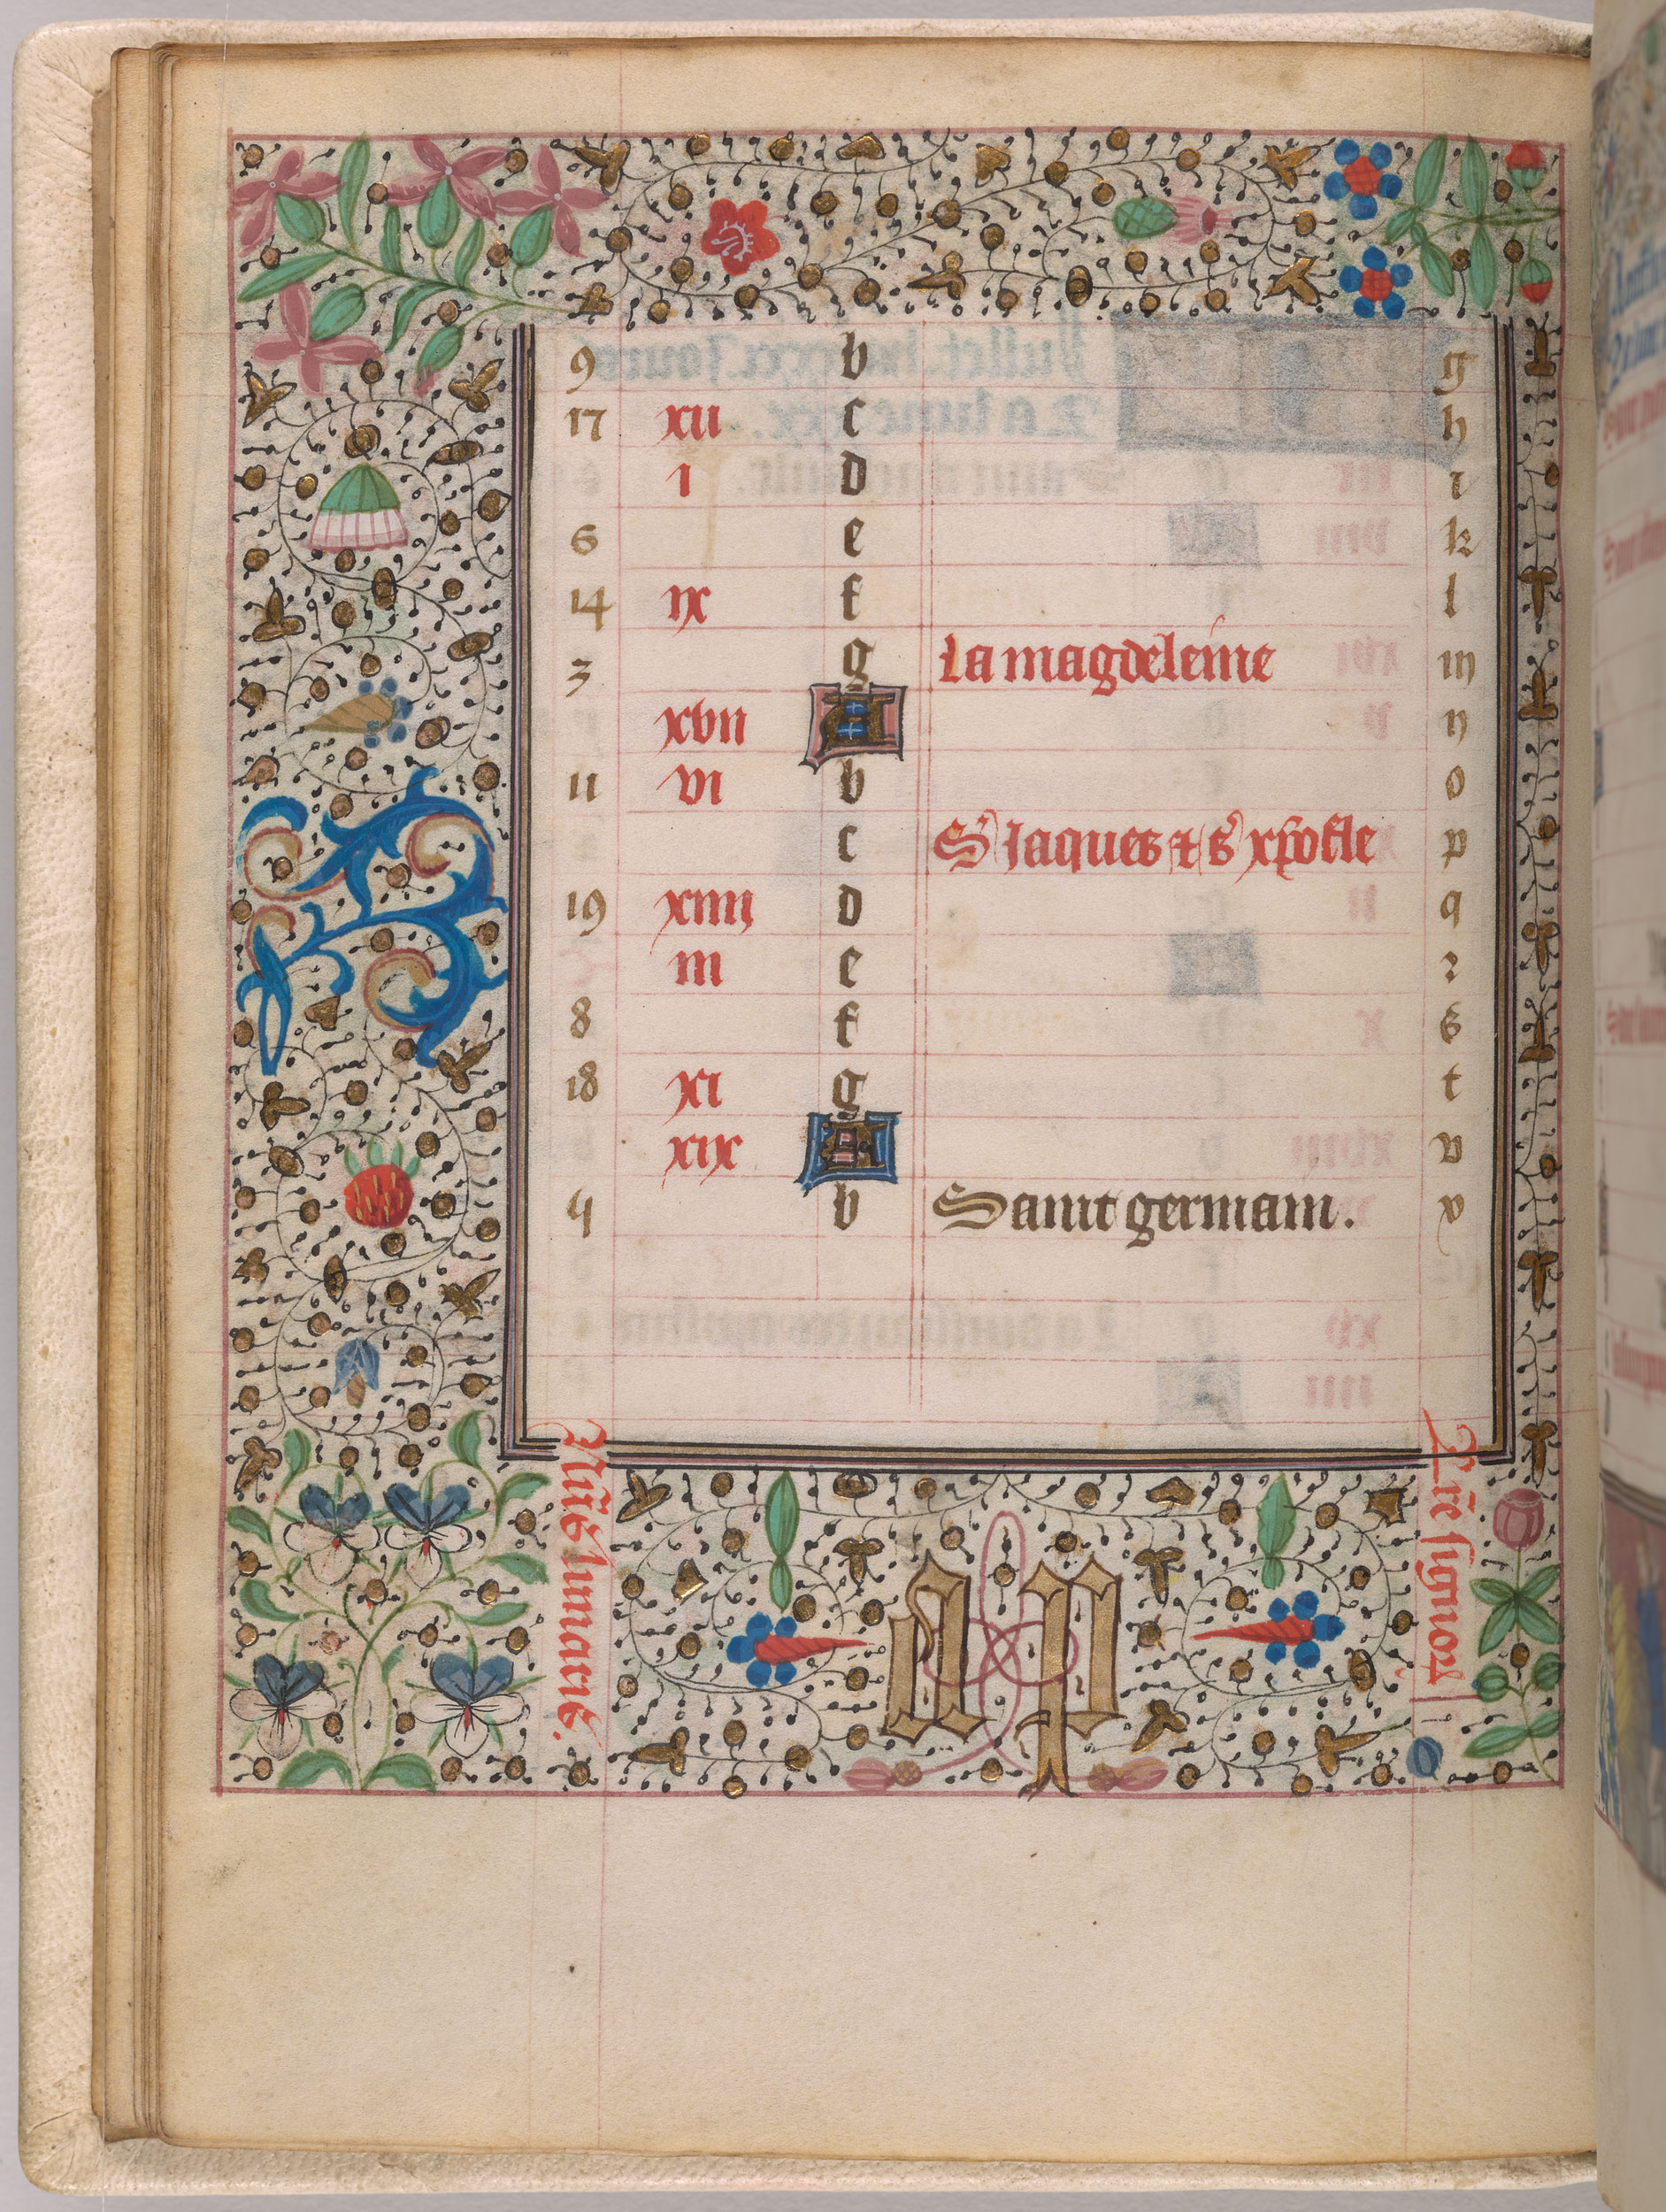 9 b g
17 xii c h
i d i
6 e k
14 ix f l
3 g La magdeleine m
xvii A n
11 vi b o
c S Jaques et s xpofle p
19 xiiii d q
iii e r
8 f s
18 xi g t
xix A v
4 b Saint germain. x
Nūs lunares.
Lr̄e signor